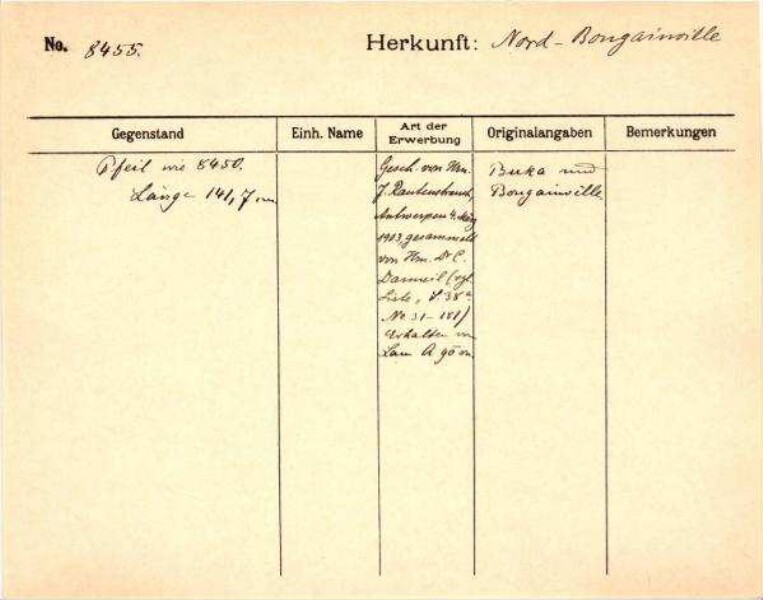 No. 8455.
Herkunft: Nord-Bougainville
Gegenstand
Einh. Name
Art der
Erwerbung
Originalangaben
Bemerkungen
Pfeil wie 8450.
Länge 141,7 cm
Gesch. von Hrn.
J. Rautenstrauch,
Antwerpen 4. März
1903, gesammelt
von Hrn. Dr C.
(vgl.
Liste, S. 38a
No 31-181)
Erhalten von
Lau
Buka und
Bougainville